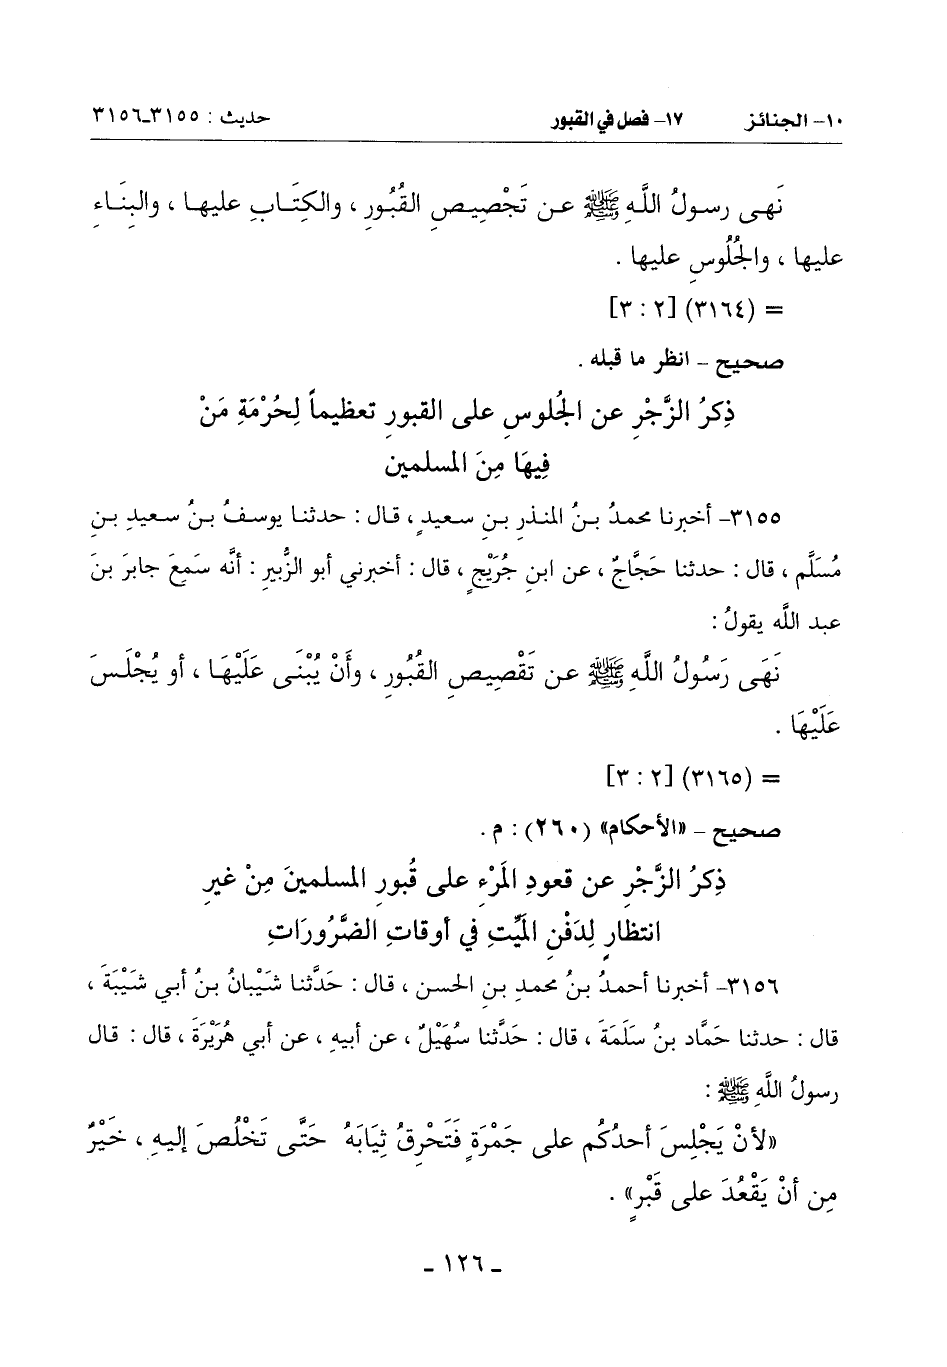 ١٠- الجنائز ١٧- فصل في القبور حديث : ٣١٥٥-٣١٥٦
نَهى رسولُ اللَّهِ ﷺ عن تَجْصِيصِ القُبُورِ ، والكِتَابِ عليها ، والبِنَاءِ
عليها ، والجُلُوسِ عليها .
= (٣١٦٤) [٢ : ٣]
صحيح - انظر ما قبله .
ذِكرُ الزَّجْرِ عن الجُلوسِ على القبورِ تعظيماً لِحُرْمَةِ مَنْ
فِيهَا مِنَ المسلمين
٣١٥٥- أخبرنا محمدُ بنُ المنذرِ بنِ سعيدٍ ، قال : حدثنا يوسفُ بنُ سعيدِ بنِ
مُسَلَّم ، قال : حدثنا حَجَّاجٌ ، عن ابنِ جُرَيْجٍ ، قال : أخبرني أبو الزُّبيرِ : أنَّه سَمعَ جابرَ بنَ
عبد اللَّه يقولُ :
نَهَى رَسُولُ اللَّهِ ﷺ عن تَقْصِيصِ القُبُورِ ، وأَنْ يُبْنَى عَلَيْهَا ، أو يُجْلَسَ
عَلَيْهَا .
= (٣١٦٥) [٢ : ٣]
صحيح - «الأحكام» (٢٦٠) : م .
ذِكرُ الزَّجْرِ عن قعودِ المَرْءِ على قُبورِ المسلمينَ مِنْ غيرِ
انتظارٍ لِدَفْنِ الميِّتِ في أوقاتِ الضَّرُورَاتِ
٣١٥٦- أخبرنا أحمدُ بنُ محمدِ بنِ الحسن ، قال : حَدَّثنا شَيْبانُ بنُ أبي شَيْبَةَ ،
قال : حدثنا حَمَّاد بنُ سَلَمَةَ ، قال : حَدَّثنا سُهَيْلٌ ، عن أبيهِ ، عن أبي هُرَيْرَةَ ، قال : قال
رسولُ اللَّهِ ﷺ :
«لأنْ يَجْلِسَ أحدُكُم على جَمْرَةٍ فَتَحْرِقُ ثِيَابَهُ حَتَّى تَخْلُصَ إليهِ ، خَيْرٌ
مِن أنْ يَقْعُدَ على قَبْرٍ» .
- ١٢٦ -